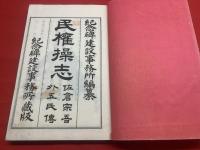 紀念碑建設事務所編纂
佐倉宗吾
外五氏傳
民權操志
紀念碑建設事務所藏版